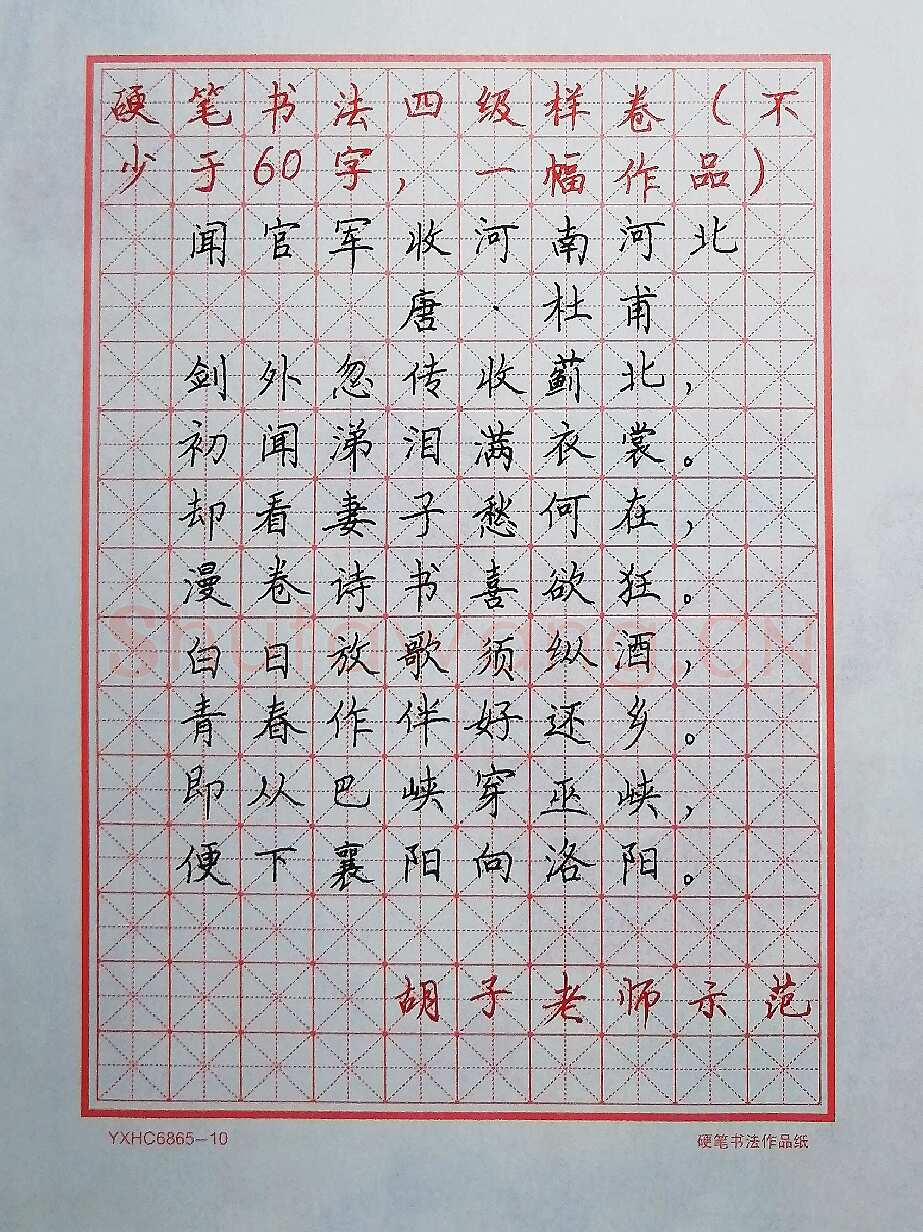 硬笔书法四级样卷（不
少于60字，一幅作品）
闻官军收河南河北
唐·杜甫
剑外忽传收蓟北，
初闻涕泪满衣裳。
却看妻子愁何在，
漫卷诗书喜欲狂。
白日放歌须纵酒，
青春作伴好还乡。
即从巴峡穿巫峡，
便下襄阳向洛阳。
胡子老师示范
YXHC6865-10
硬笔书法作品纸